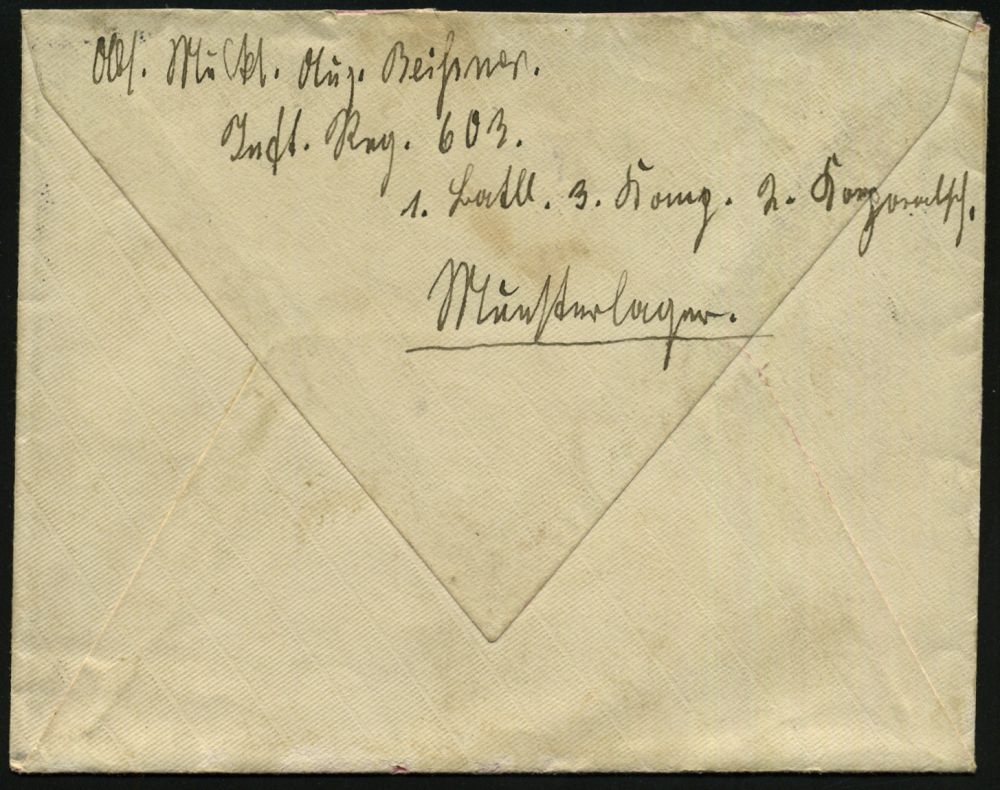 Abs. Musktr. Aug. Beißner.
Inft. Reg. 603.
1. Batll. 3. Komp. 2. Korporalsch.
Munsterlager.